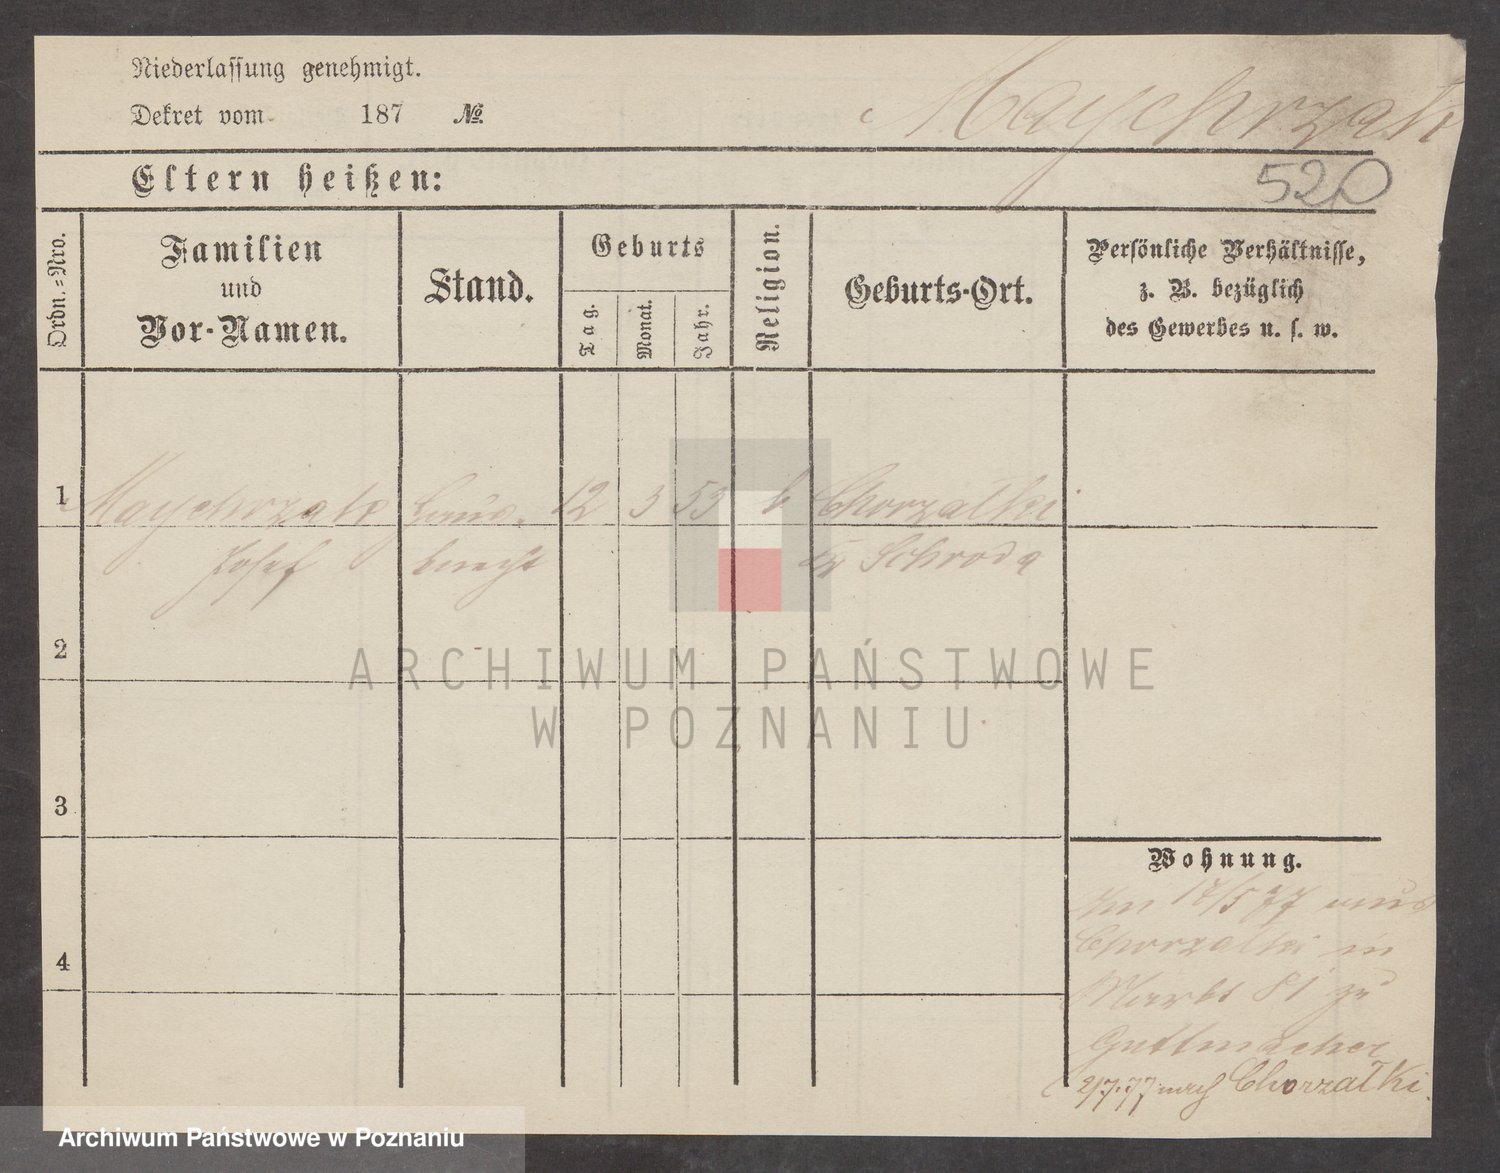 Niederlassung genehmigt.
Dekret vom 187 №
Maychrzak
Eltern heißen:
520
Ordn.-Nro.
Familien
und
Vor-Namen.
Stand.
Geburts
Tag.
Monat.
Jahr.
Religion.
Geburts-Ort.
Persönliche Verhältnisse,
z. B. bezüglich
des Gewerbes u. s. w.
1 Maychrzak Haus- 12 3 53 k Chorzałki
Josef knecht Kr Schroda
2
ARCHIWUM PAŃSTWOWE
W POZNANIU
3
Wohnung.
Am 17/5 77 aus
Chorzałki in
4
Markt 81 zu
Guttmacher
2/7.77 nach Chorzałki.
Archiwum Państwowe w Poznaniu